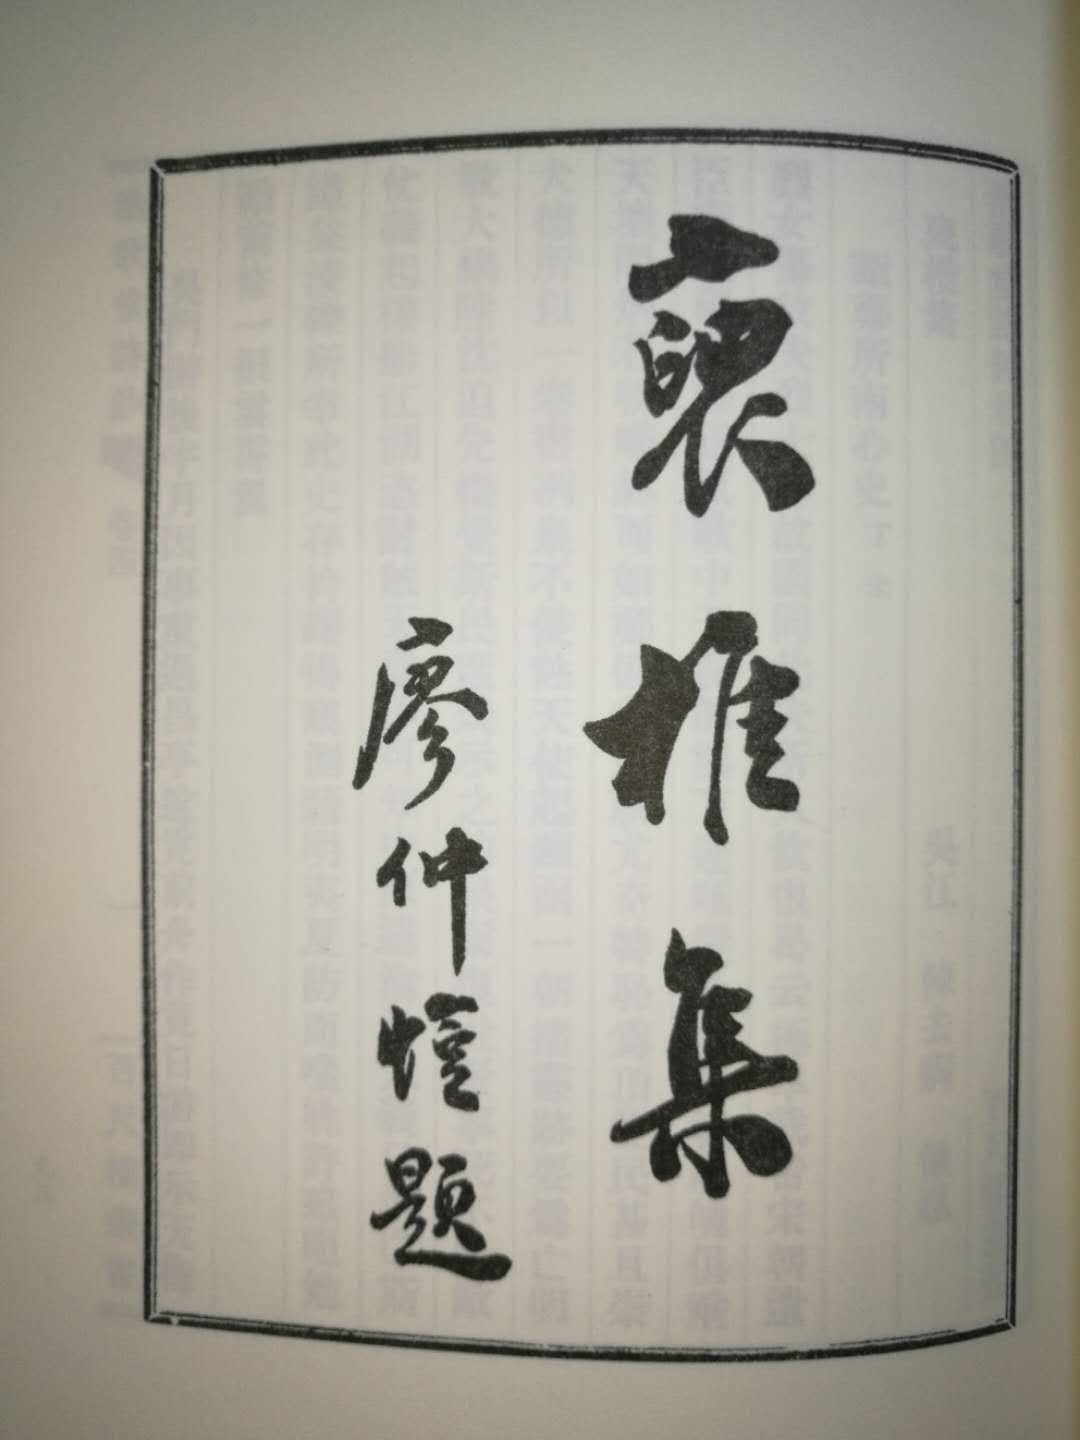 褱椎集
廖仲愷題